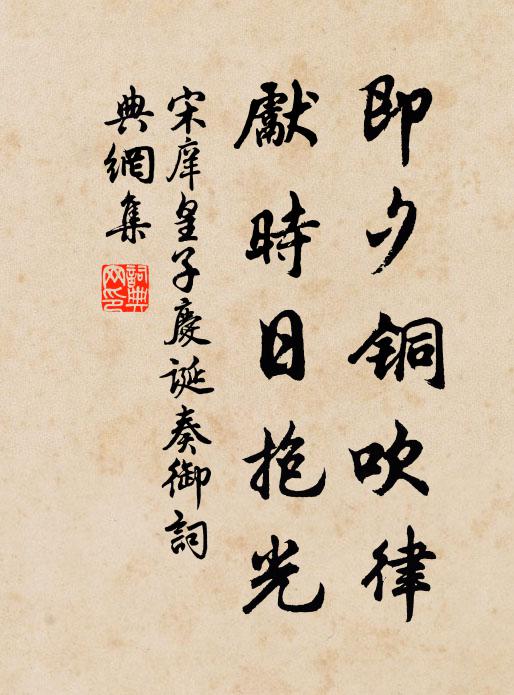 即夕銅吹律
獻時日抱光
宋庠皇子慶誕奏御詞
典網集
詞典
网印